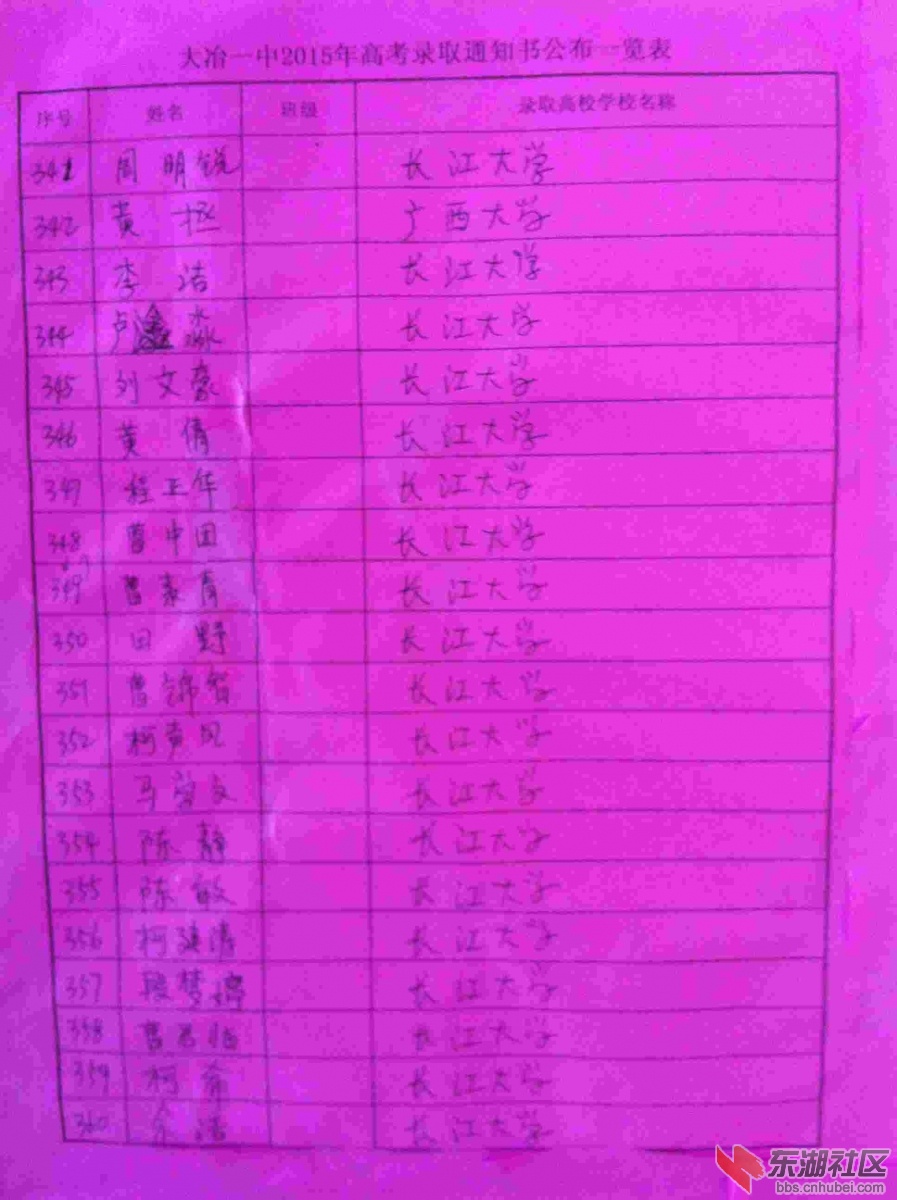 大冶一中2015年高考录取通知书公布一览表
序号 姓名 班级 录取高校学校名称
341 周明锐 长江大学
342 黄拯 广西大学
343 李洁 长江大学
344 卢鑫淼 长江大学
345 刘文豪 长江大学
346 黄倩 长江大学
347 程正华 长江大学
348 曹中田 长江大学
349 曹素青 长江大学
350 田野 长江大学
351 曹锦智 长江大学
352 柯贵风 长江大学
353 马 长江大学
354 陈静 长江大学
355 陈敏 长江大学
356 柯 长江大学
357 段梦 长江大学
358 曹 长江大学
359 柯 长江大学
360 洁 长江大学
东湖社区
bbs.cnhubei.com